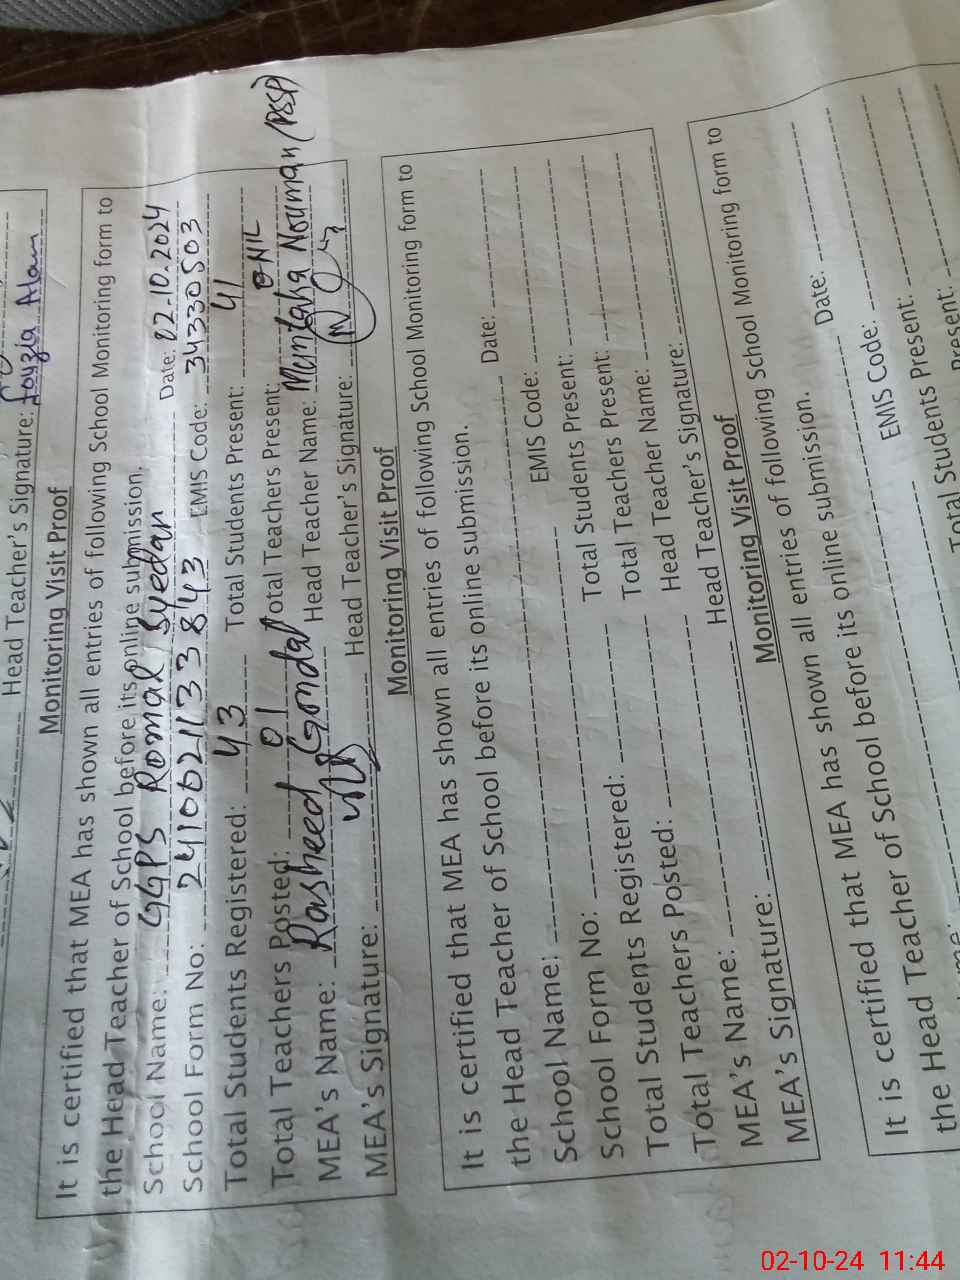 Head Teacher's Signature: Foyzia Alam
Monitoring Visit Proof
It is certified that MEA has shown all entries of following School Monitoring form to
the Head Teacher of School before its online submission.
School Name: GGPS Romal Syedan Date: 02.10.2024
School Form No: 2410021133843 EMIS Code: 34330503
Total Students Registered: 43 Total Students Present: 41
Total Teachers Posted: 01 Total Teachers Present: 0 NIL
MEA's Name: Rasheed Gondal Head Teacher Name: Mumtaha Nouman (PSP)
MEA's Signature: Head Teacher's Signature:
Monitoring Visit Proof
It is certified that MEA has shown all entries of following School Monitoring form to
the Head Teacher of School before its online submission.
School Name: Date:
School Form No: EMIS Code:
Total Students Registered: Total Students Present:
Total Teachers Posted: Total Teachers Present:
MEA's Name: Head Teacher Name:
MEA's Signature: Head Teacher's Signature:
Monitoring Visit Proof
It is certified that MEA has shown all entries of following School Monitoring form to
the Head Teacher of School before its online submission.
Date:
EMIS Code:
Total Students Present:
Present:
02-10-24 11:44